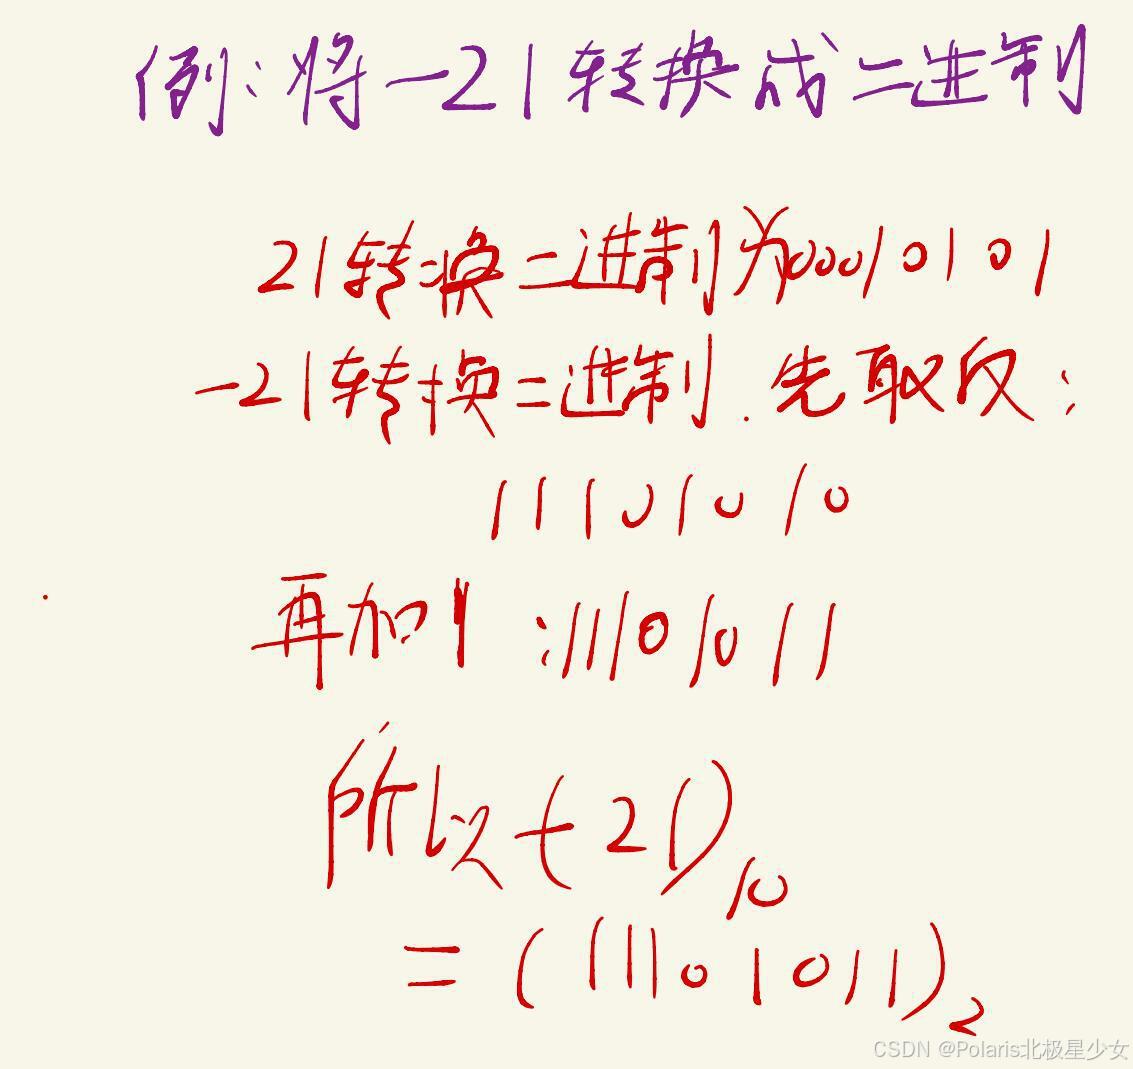 例:将-21转换成二进制
21转换二进制为00010101
-21转换二进制.先取反:
11101010
再加1:11101011
所以(-21)10
=(11101011)2
CSDN @Polaris北极星少女